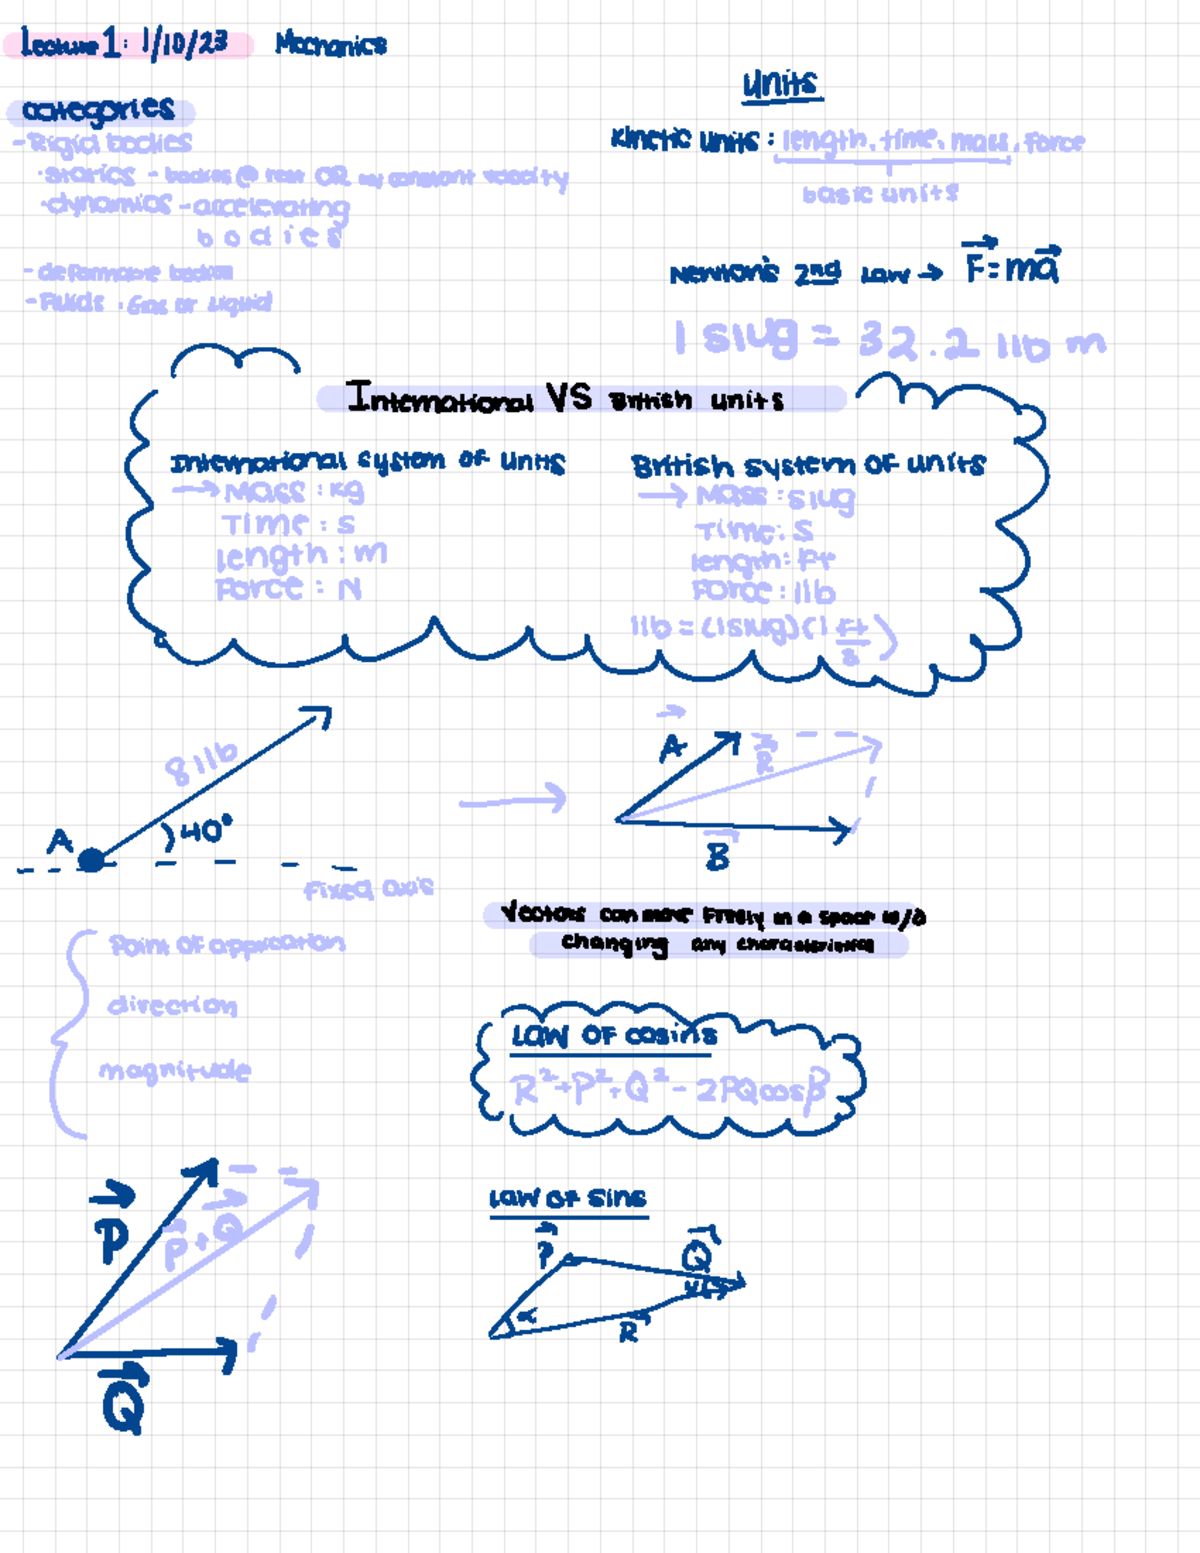 Lecture 1: 1/10/23 Mechanics
categories
-Rigid bodies
·statics - bodies @ rest OR any constant velocity
·dynamics - accelerating
bodies
- deformable bodies
- Fluids · Gas or Liquid
Units
Kinetic units: length, time, mass, force
basic units
Newton's 2nd Law → F=ma
1 slug = 32.2 lb m
International VS British units
International system of units
→ Mass: kg
Time: s
length: m
Force: N
British system of units
→ Mass: slug
Time: S
length: ft
Force: 1lb
1lb = (1slug)(1 ft/s)
81lb
A
40°
Fixed axis
A
R
B
Vectors can move freely in a space w/o
changing any characteristics
Point of application
direction
magnitude
Law of cosins
R²+P²+Q² - 2PQcosβ
P
P+Q
Q
Law of sins
P
Q
α
R